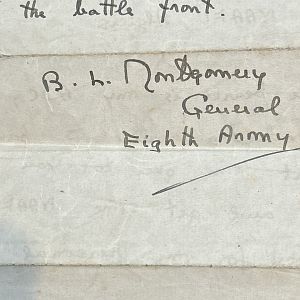 the battle front.
B. L. Montgomery
General
Eighth Army